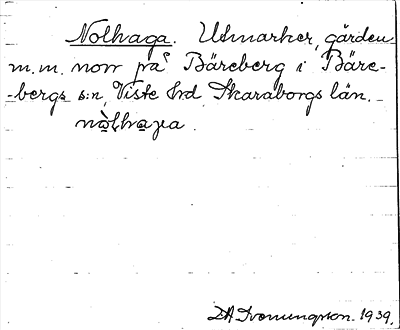 Nolhaga. Utmarker, gärden
m.m. norr på Bäreberg i Bäre-
-bergs s:n, Viste hrd Skaraborgs län.
nòlhaɡa
1939.